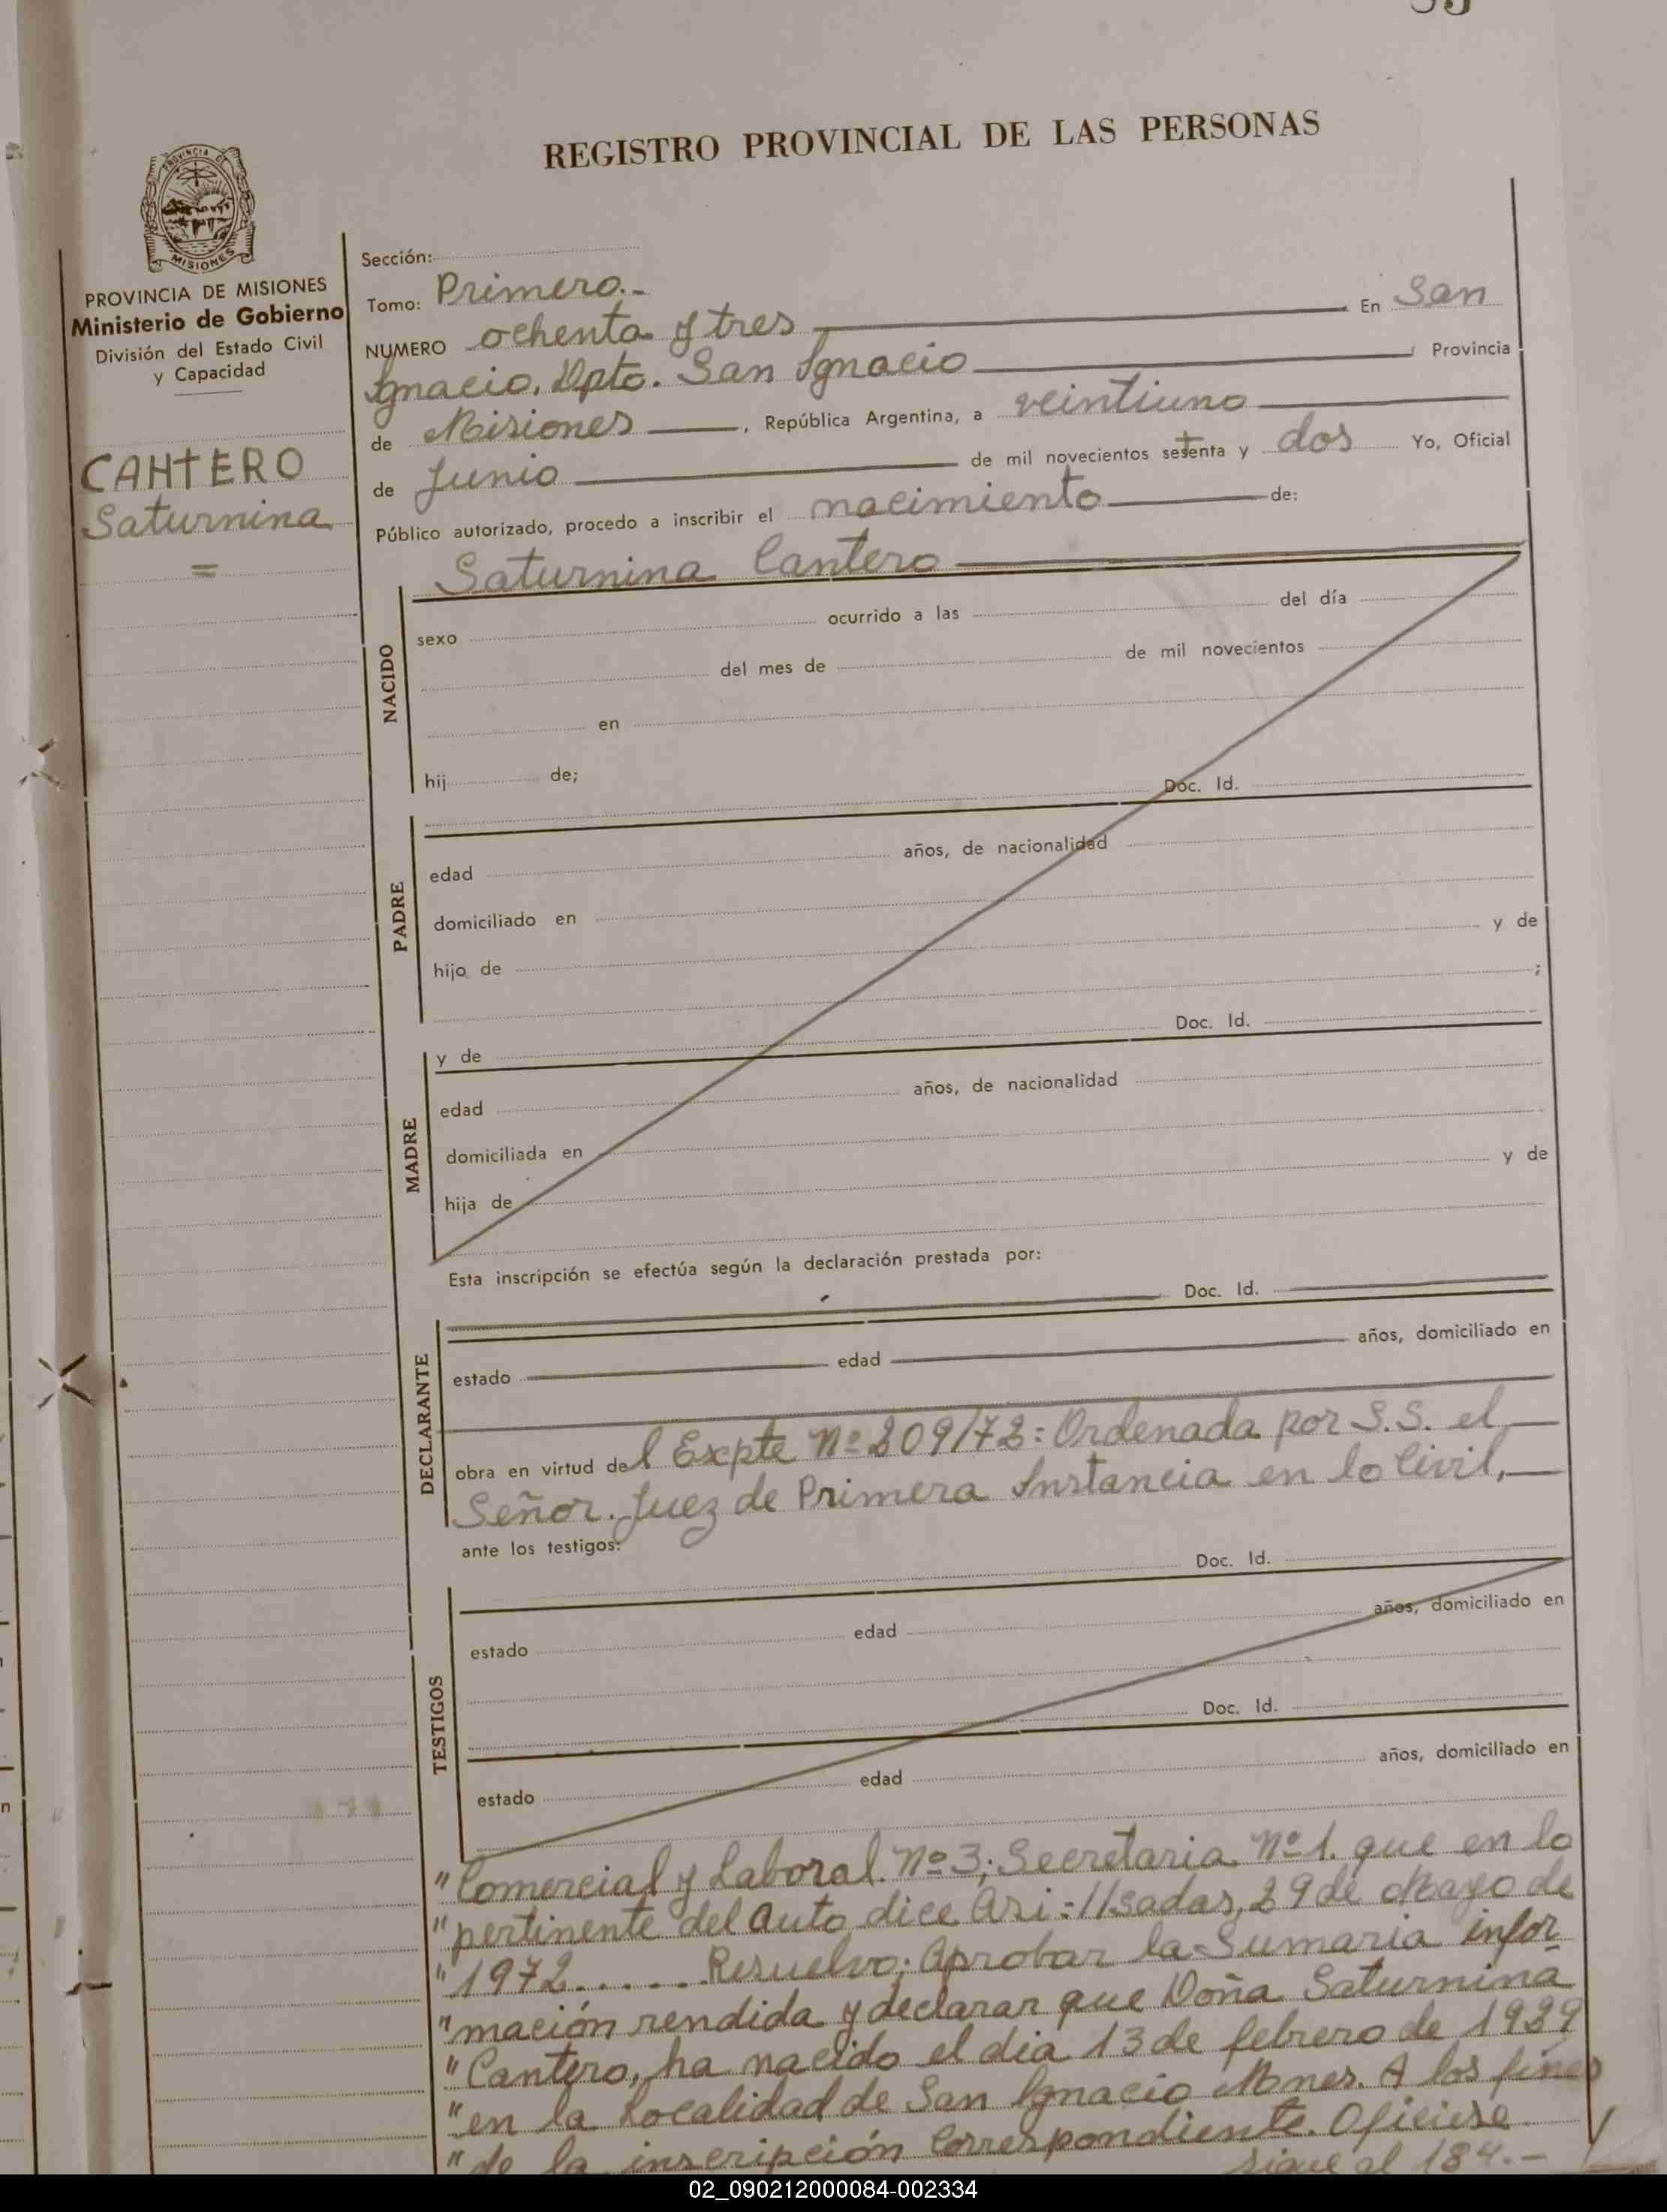 REGISTRO PROVINCIAL DE LAS PERSONAS
PROVINCIA DE
MISIONES
PROVINCIA DE MISIONES
Ministerio de Gobierno
División del Estado Civil
y Capacidad
CANTERO
Saturnina
=
Sección:
Tomo: Primero.-
NUMERO ochenta y tres En San
Ignacio. Dpto. San Ignacio Provincia
de Misiones, República Argentina, a veintiuno
de Junio de mil novecientos setenta y dos Yo, Oficial
Público autorizado, procedo a inscribir el nacimiento de:
Saturnina Cantero
NACIDO
sexo ocurrido a las del día
del mes de de mil novecientos
en
hij de;
Doc. Id.
PADRE
edad años, de nacionalidad
domiciliado en
hijo de y de
;
y de Doc. Id.
MADRE
edad años, de nacionalidad
domiciliada en
hija de y de
Esta inscripción se efectúa según la declaración prestada por:
Doc. Id.
DECLARANTE
estado edad años, domiciliado en
obra en virtud del Expte Nº 209/72: Ordenada por S.S. el
Señor. Juez de Primera Instancia en lo Civil,
ante los testigos:
Doc. Id.
TESTIGOS
estado edad años, domiciliado en
Doc. Id.
estado edad años, domiciliado en
"Comercial y Laboral. Nº 3; Secretaria Nº 1. que en lo
"pertinente del auto dice Asi:-//sadas, 29 de Mayo de
"1972...... Resuelvo: Aprobar la Sumaria infor
"mación rendida y declarar que Doña Saturnina
"Cantero, ha nacido el dia 13 de febrero de
"en la Localidad de San Ignacio Mnes. A los fines
"de la inscripción Correspondiente. Oficiese
sigue al 184.-
02_090212000084-002334